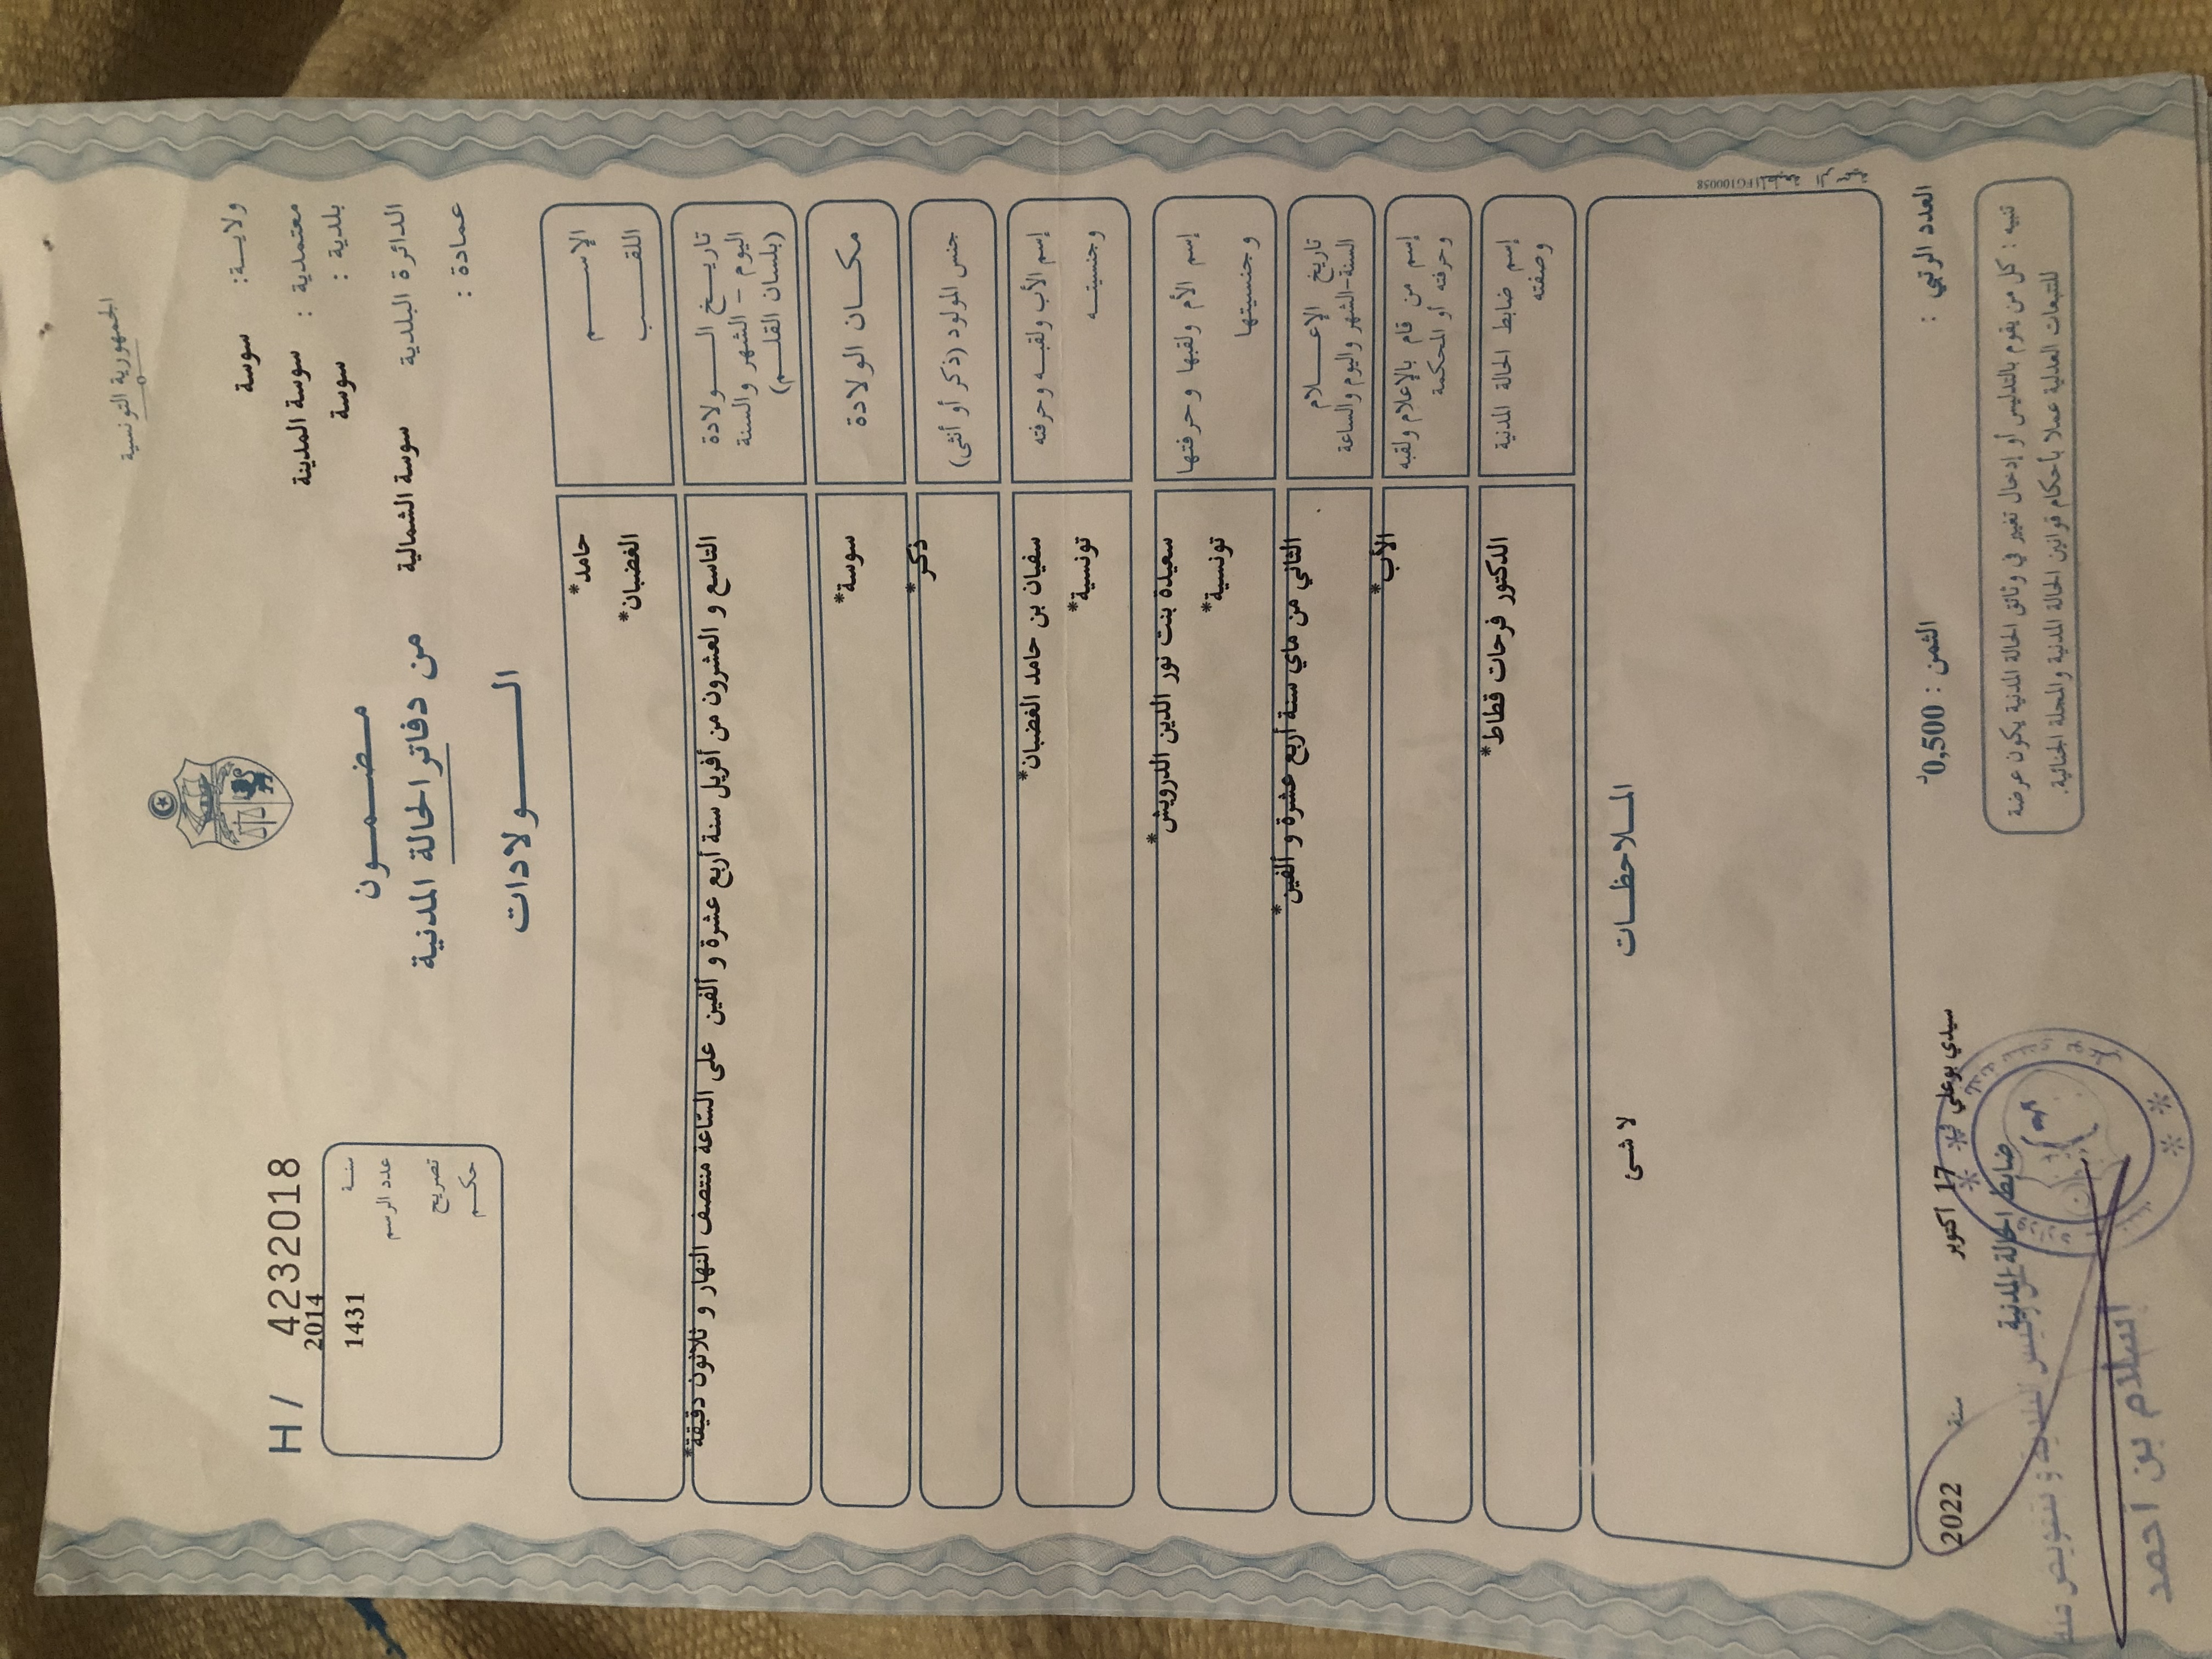 الجمهورية التونسية
ولايـــة: سوسة
معتمدية : سوسة المدينة
بلدية : سوسة
الدائرة البلدية سوسة الشمالية
عمادة :
H / 4232018
سنــة 2014
عدد الرسم 1431
تصريح
حكــم
مضمــون
من دفاتر الحالة المدنية
الــولادات
الإســـم حامد*
اللقــب الغضبان*
تاريــخ الــــولادة
اليوم – الشهر والسنة
(بلسان القلــم)
التاسع و العشرون من أفريل سنة أربع عشرة و ألفين على السّاعة منتصف النهار و ثلاثون دقيقة*
مكــان الولادة سوسة*
جنس المولود (ذكر أو أنثى) ذكر*
إسم الأب ولقبــه وحرفته سفيان بن حامد الغضبان*
وجنسيتــه تونسية*
إسم الأم ولقبها وحرفتها سعيدة بنت نور الدين الدرويش*
وجنسيتها تونسية*
تاريخ الإعـــلام
السنة-الشهر واليوم والساعة
الثاني من ماي سنة أربع عشرة و ألفين*
إسم من قام بالإعلام ولقبه
وحرفته أو المحكمة
الأب*
إسم ضابط الحالة المدنية
وصفته
الدكتور فرحات قطاط*
الملاحظــات
لا شئ
FG100058
العدد الرتبي :
الثمن : 0,500د
سيدي بوعلي في 17 أكتوبر سنة 2022
ضابط الحالة المدنية
تنبيه : كل من يقوم بالتدليس أو إدخال تغيير في وثائق الحالة المدنية يكون عرضة
للتتبعات العدلية عملا بأحكام قوانين الحالة المدنية والمجلة الجنائية.
إسلام بن احمد